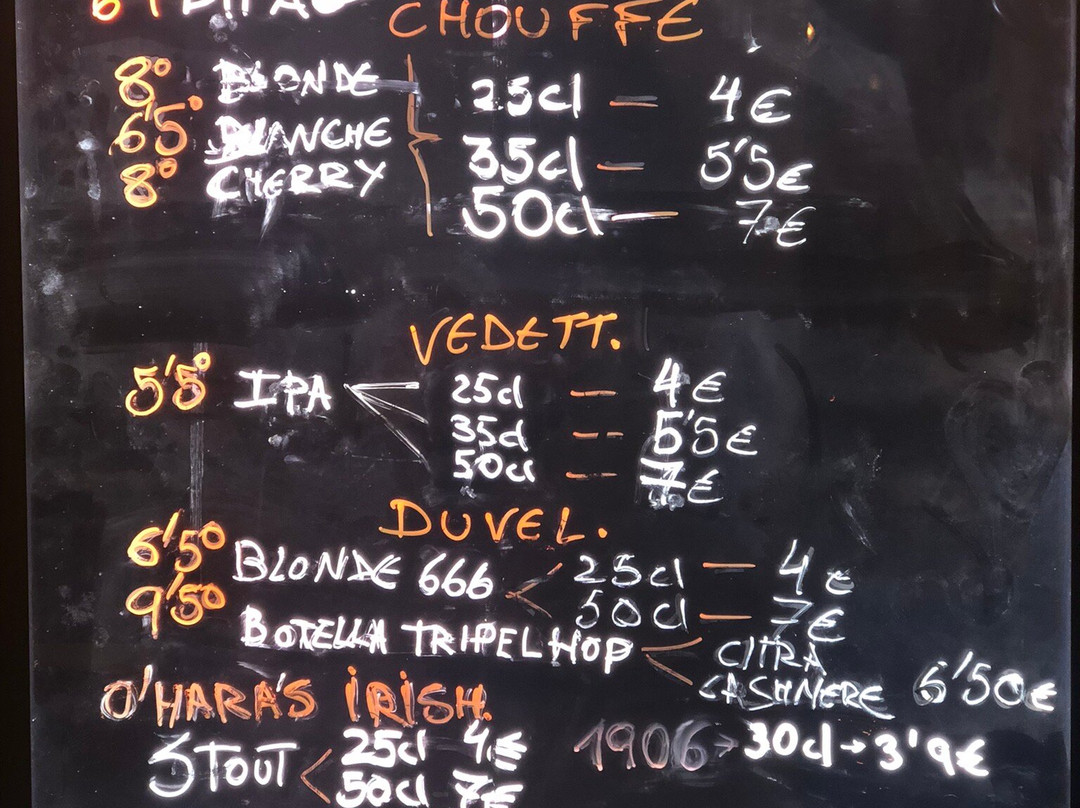 CHOUFFE
8° BLONDE 25cl — 4€
6'5° BLANCHE 35cl — 5'5€
8° CHERRY 50cl — 7€
VEDETT.
5'5° IPA 25cl — 4€
35cl — 5'5€
50cl — 7€
DUVEL.
6'5° BLONDE 666 25cl — 4€
9'5° 50cl — 7€
BOTELLA TRIPEL HOP CITRA
CASHMERE 6'50€
O'HARA'S IRISH.
STOUT 25cl 4€
50cl 7€
1906 → 30cl → 3'9€